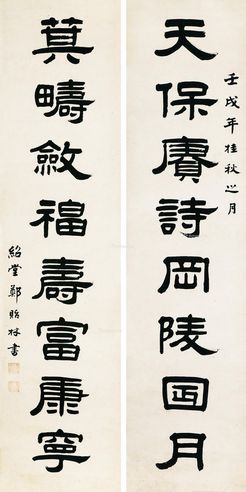 壬戌年桂秋之月
天保賡詩岡陵月
萁疇斂福壽富康寧
紹堂鄭貽林書